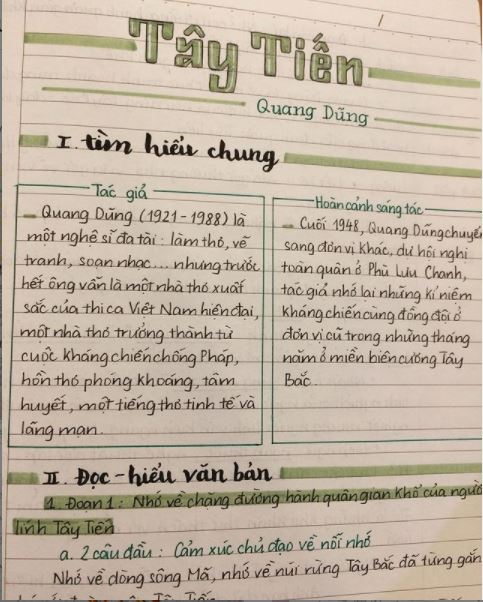 Tây Tiến
Quang Dũng
I. tìm hiểu chung
Tác giả
- Quang Dũng (1921-1988) là
một nghệ sĩ đa tài: làm thơ, vẽ
tranh, soạn nhạc... nhưng trước
hết ông vẫn là một nhà thơ xuất
sắc của thi ca Việt Nam hiện đại,
một nhà thơ trưởng thành từ
cuộc kháng chiến chống Pháp,
hồn thơ phóng khoáng, tâm
huyết, một tiếng thơ tinh tế và
lãng mạn.
Hoàn cảnh sáng tác
- Cuối 1948, Quang Dũng chuyển
sang đơn vị khác, dự hội nghị
toàn quân ở Phù Lưu Chanh,
tác giả nhớ lại những kỉ niệm
kháng chiến cùng đồng đội ở
đơn vị cũ trong những tháng
năm ở miền biên cương Tây
Bắc.
II. Đọc - hiểu văn bản
1. Đoạn 1: Nhớ về chặng đường hành quân gian khổ của người
lính Tây Tiến
a. 2 câu đầu: Cảm xúc chủ đạo về nỗi nhớ
Nhớ về dòng sông Mã, nhớ về núi rừng Tây Bắc đã từng gắn